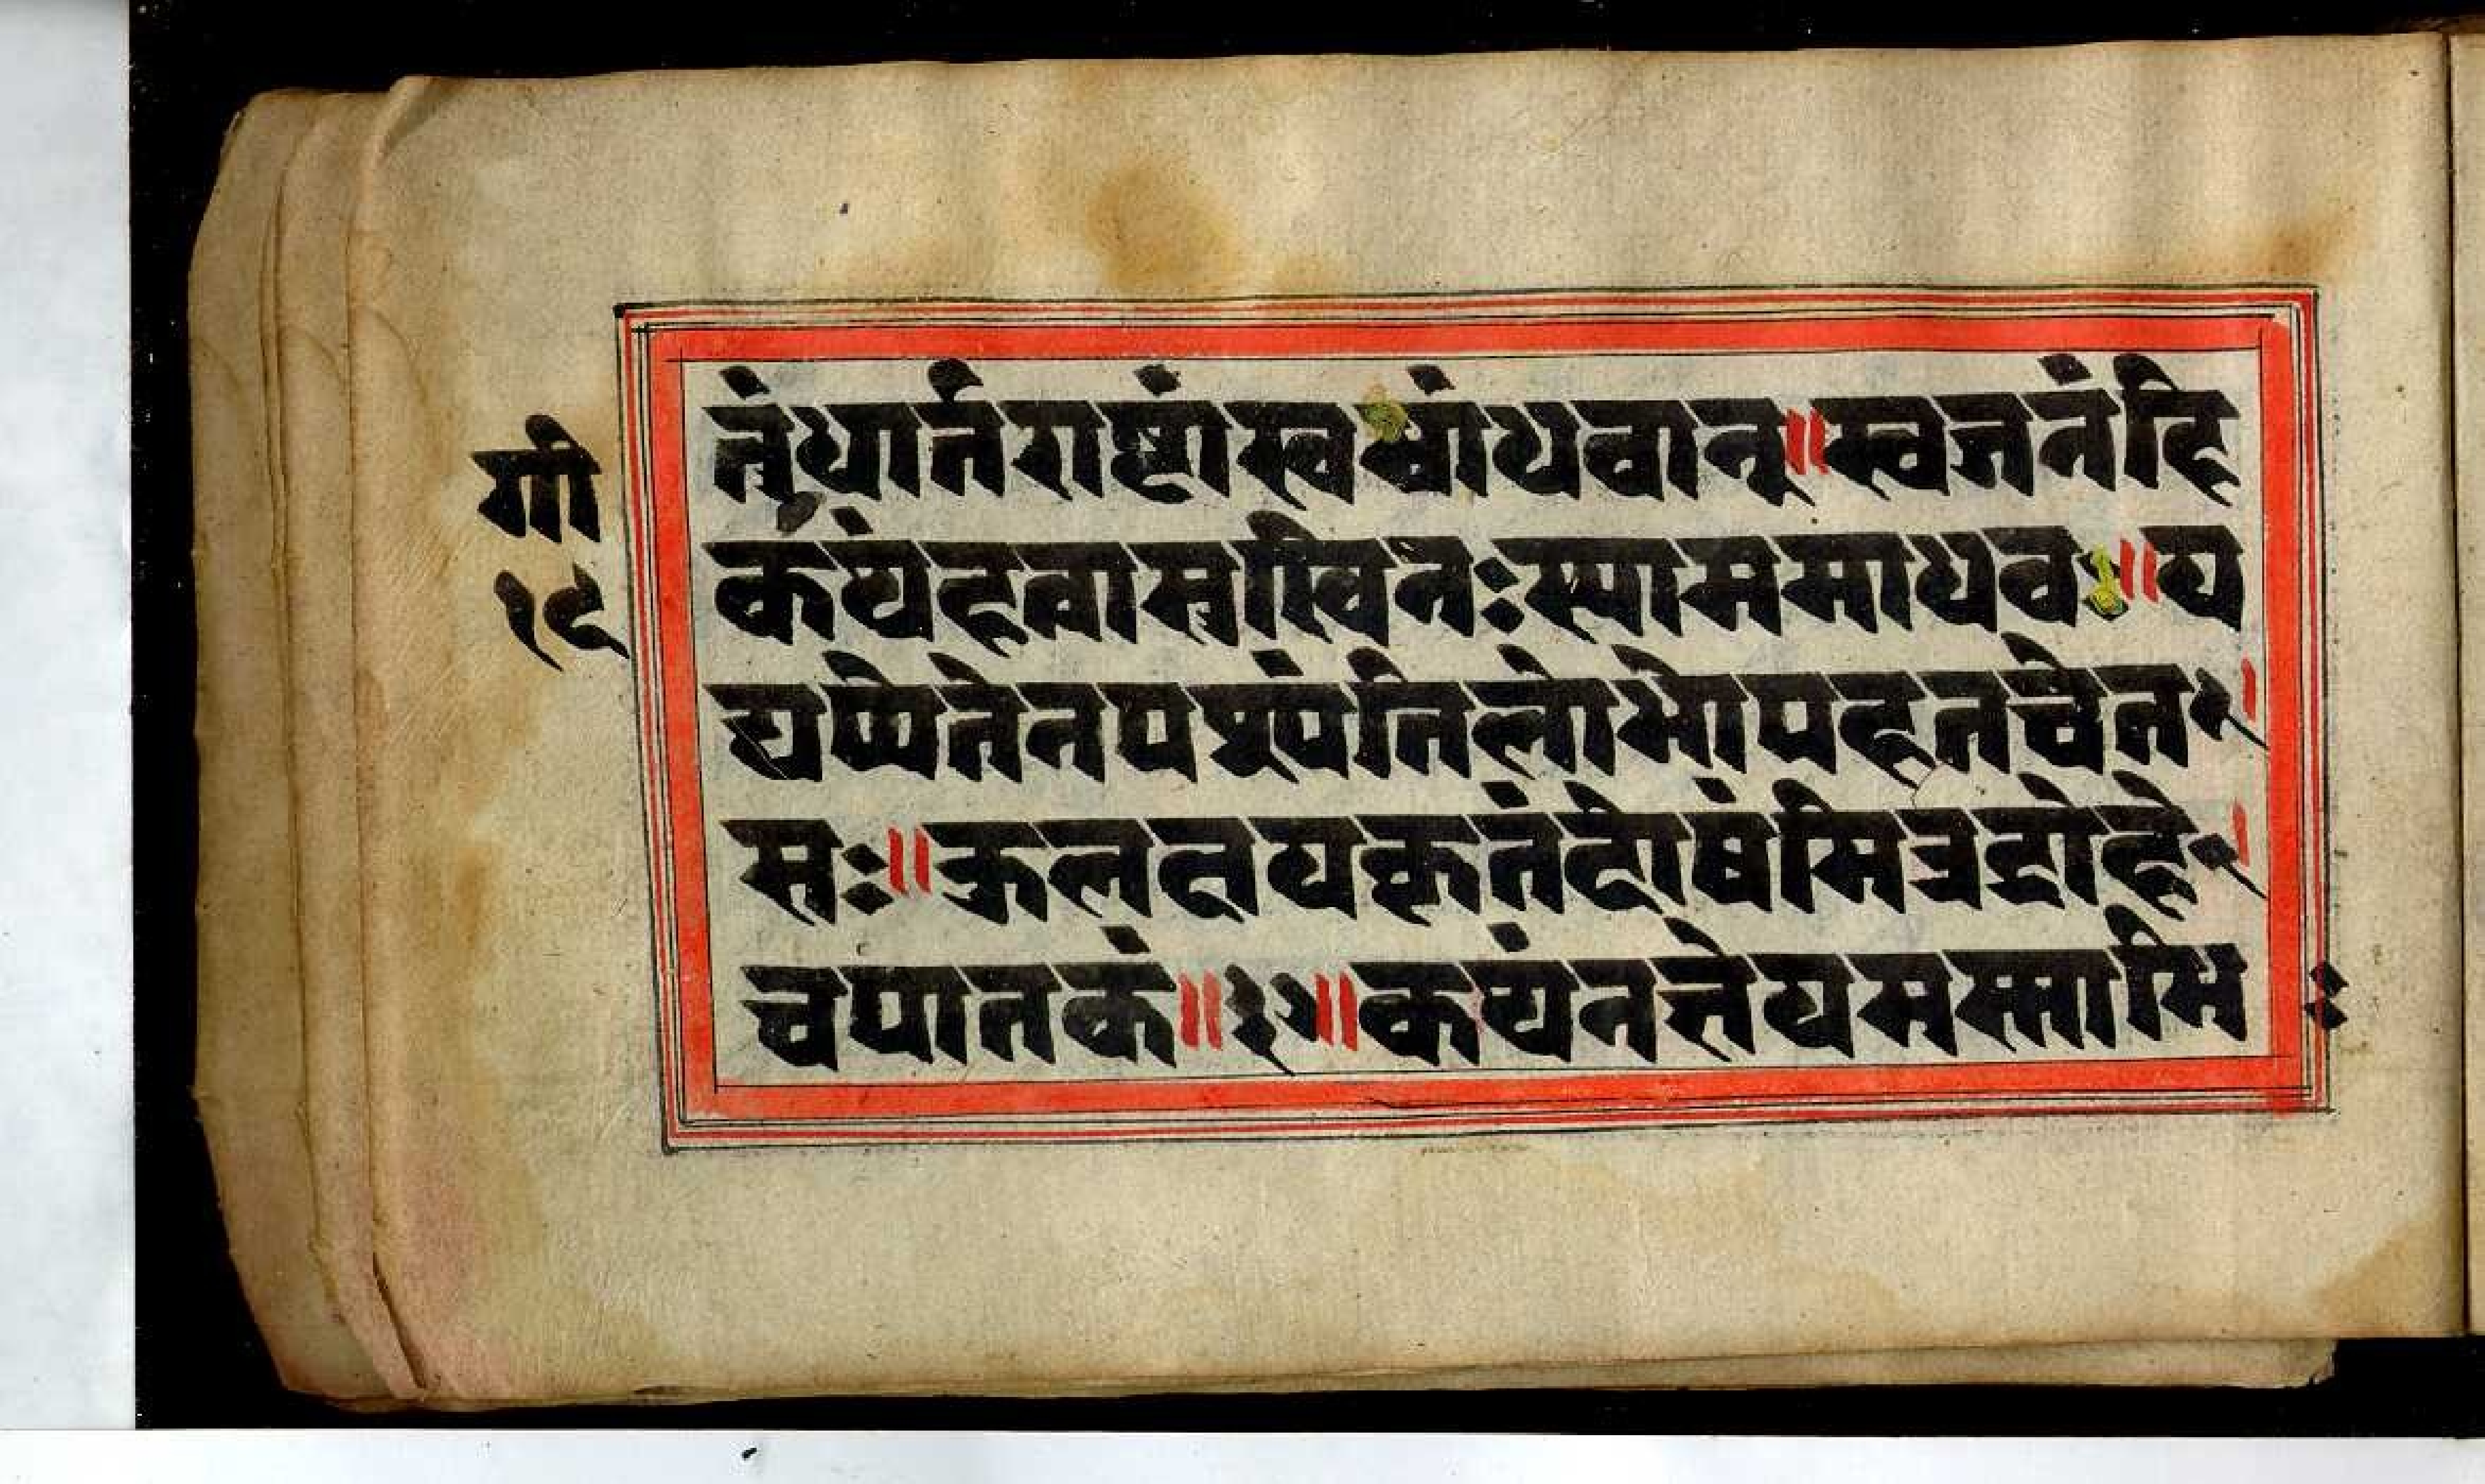 गी
१९
तुंधार्तराष्ट्रांस्वबांधवान्॥स्वजनंहि
कथंहत्वासुखिनःस्याममाधव॥य
द्यप्येतेनपश्यंतिलोभोपहतचेत
सः॥कुलक्षयकृतंदोषंमित्रद्रोहे
चपातकं॥३८॥कथंनज्ञेयमस्माभि
ः